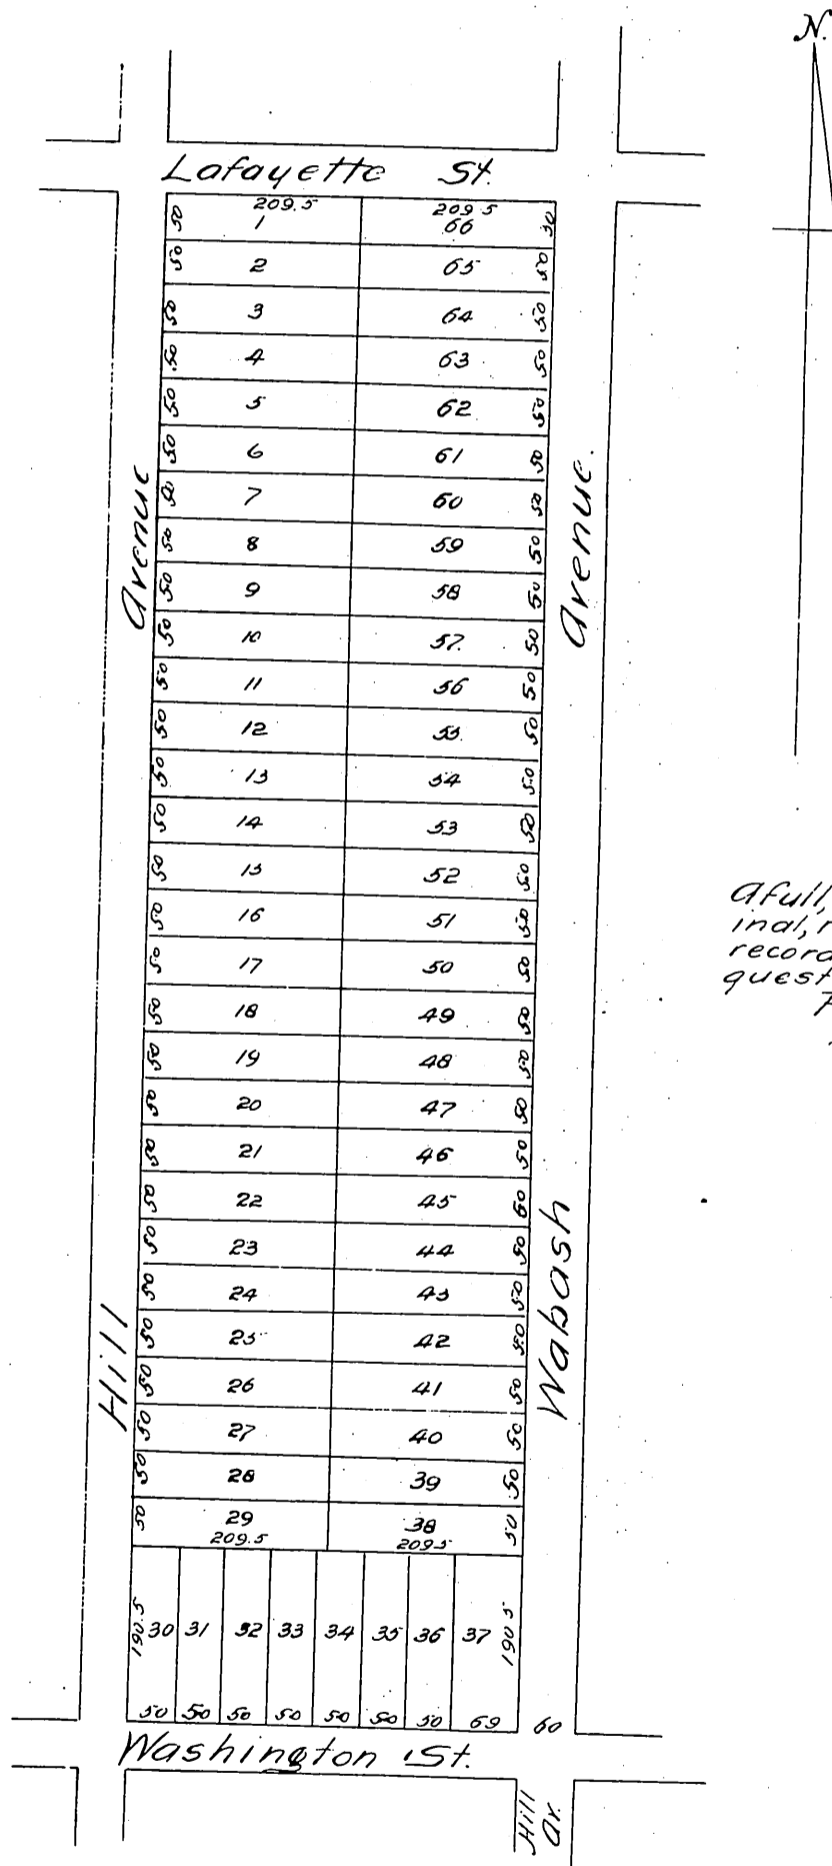 N.
Lafayette St.
209.5 209.5
50 1 66 50
50 2 65 50
50 3 64 50
50 4 63 50
50 5 62 50
50 6 61 50
50 7 60 50
50 8 59 50
50 9 58 50
50 10 57. 50
50 11 56 50
50 12 55. 50
50 13 54 50
50 14 53 50
50 15 52 50
50 16 51 50
50 17 50 50
50 18 49 50
50 19 48 50
50 20 47 50
50 21 46 50
50 22 45 50
50 23 44 50
50 24 43 50
50 25 42 50
50 26 41 50
50 27 40 50
50 28 39 50
50 29 38 50
209.5 209.5
Hill Avenue
Wabash Avenue.
190.5 30 31 32 33 34 35 36 37 190.5
50 50 50 50 50 50 50 69 60
Washington St.
Hill
Av.
a full,
inal, r
record
quest